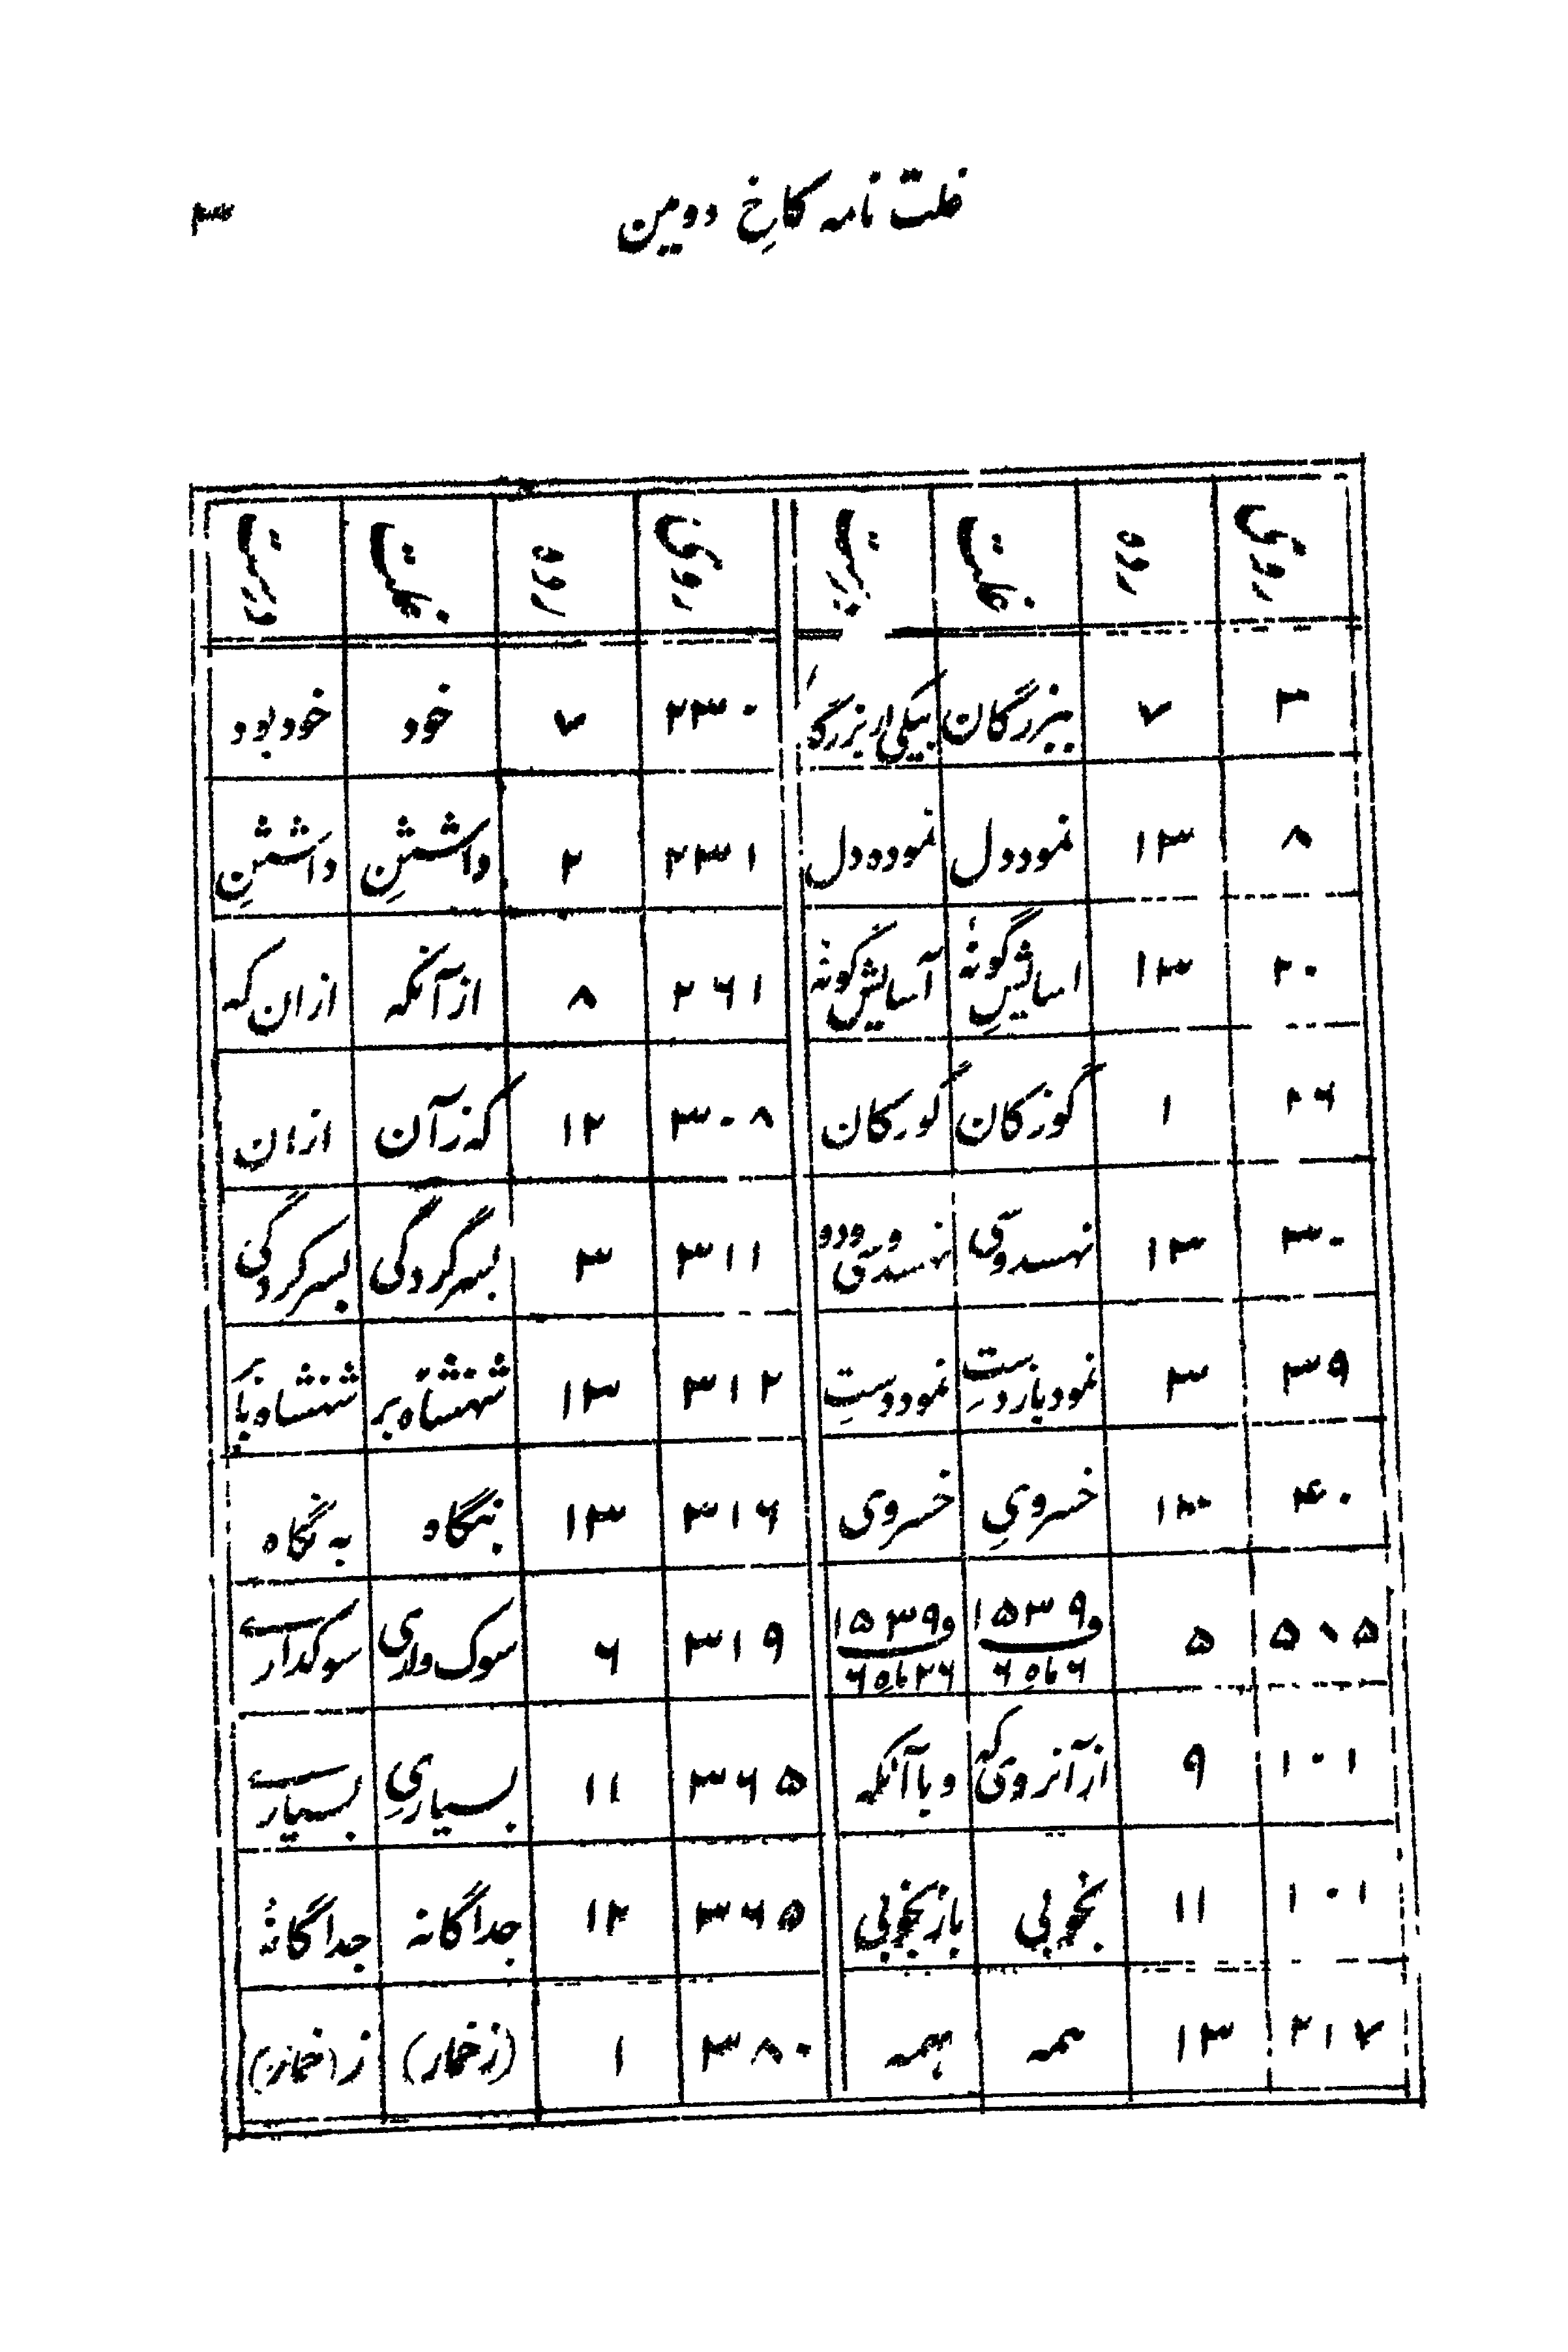 غلت نامه کاخِ دومین
روی رده غلت درست روی رده غلت درست
۳ ۷ ببزرگان بیکی از بزرگ ۲۳۰ ۷ خود خود بود
۸ ۱۳ نمود دل نموده دل ۲۳۱ ۲ داشتنِ داشتنِ
۲۰ ۱۳ اسایشِ گونهٔ آسایش گونهٔ ۲۶۱ ۸ از آنکه از ان که
۲۶ ۱ گوزکان گورکان ۳۰۸ ۱۲ که ز آن از ان
۳۰ ۱۳ ۳۱۱ ۳ بسر گردگی بسر کردگی
۳۹ ۳ نمود باز دستِ نمود دستِ ۳۱۲ ۱۳ شهنشاه بر
۴۰ ۱۳ خسرویِ خسروی ۳۱۶ ۱۳ بنگاه به نگاه
۵۰۵ ۵ و ۱۵۳۹ ۶ ماه ۶ و ۱۵۳۹ ۲۶ ماه ۶ ۳۱۹ ۶ سوک واری سوکدارے
۱۰۱ ۹ از آنروی که و با آنکه ۳۶۵ ۱۱ بسیاریِ بسیارے
۱۰۱ ۱۱ بخوبی باز بخوبی ۳۶۵ ۱۲ جداگانه جداگانهٔ
۲۱۷ ۱۳ همه ۳۸۰ ۱ (ز خمار)